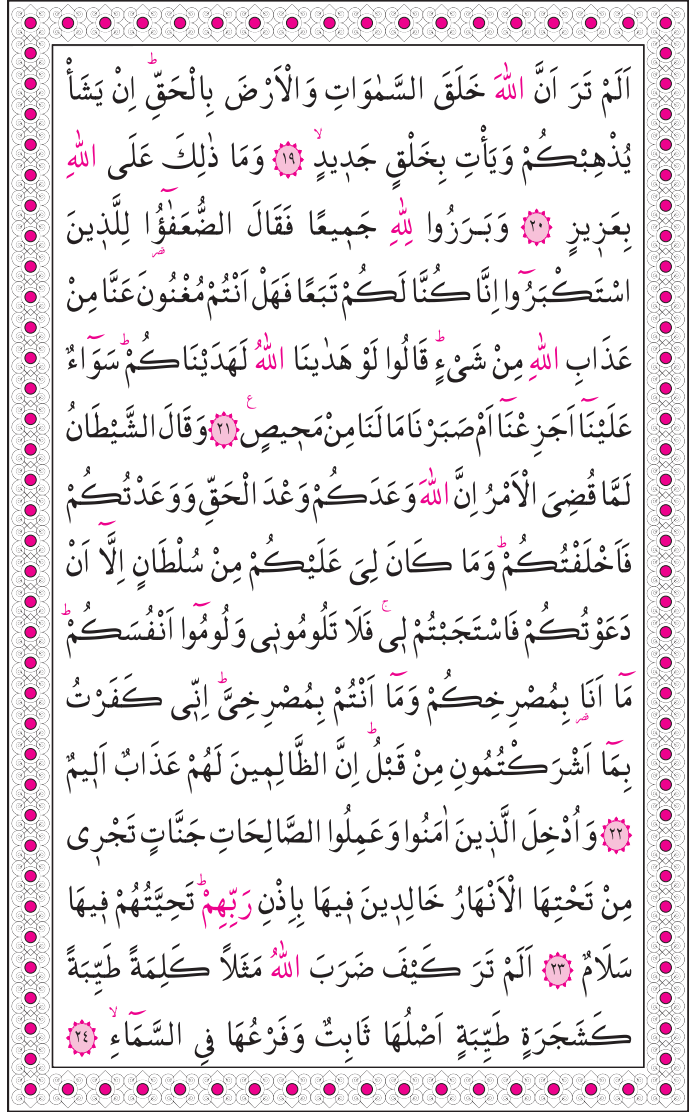 اَلَمْ تَرَ اَنَّ اللّٰهَ خَلَقَ السَّمٰوَاتِ وَالْاَرْضَ بِالْحَقِّۜ اِنْ يَشَأْ
يُذْهِبْكُمْ وَيَأْتِ بِخَلْقٍ جَد۪يدٍۙ ﴿١٩﴾ وَمَا ذٰلِكَ عَلَى اللّٰهِ
بِعَز۪يزٍ ﴿٢٠﴾ وَبَرَزُوا لِلّٰهِ جَم۪يعًا فَقَالَ الضُّعَفٰٓؤُ۬ا لِلَّذ۪ينَ
اسْتَكْبَرُٓوا اِنَّا كُنَّا لَكُمْ تَبَعًا فَهَلْ اَنْتُمْ مُغْنُونَ عَنَّا مِنْ
عَذَابِ اللّٰهِ مِنْ شَيْءٍۜ قَالُوا لَوْ هَدٰينَا اللّٰهُ لَهَدَيْنَاكُمْۜ سَوَٓاءٌ
عَلَيْنَٓا اَجَزِعْنَٓا اَمْ صَبَرْنَا مَا لَنَا مِنْ مَح۪يصٍ۟ ﴿٢١﴾ وَقَالَ الشَّيْطَانُ
لَمَّا قُضِيَ الْاَمْرُ اِنَّ اللّٰهَ وَعَدَكُمْ وَعْدَ الْحَقِّ وَوَعَدْتُكُمْ
فَاَخْلَفْتُكُمْۜ وَمَا كَانَ لِيَ عَلَيْكُمْ مِنْ سُلْطَانٍ اِلَّٓا اَنْ
دَعَوْتُكُمْ فَاسْتَجَبْتُمْ ل۪يۚ فَلَا تَلُومُون۪ي وَلُومُٓوا اَنْفُسَكُمْۜ
مَٓا اَنَا۬ بِمُصْرِخِكُمْ وَمَٓا اَنْتُمْ بِمُصْرِخِيَّۜ اِنّ۪ي كَفَرْتُ
بِمَٓا اَشْرَكْتُمُونِ مِنْ قَبْلُۜ اِنَّ الظَّالِم۪ينَ لَهُمْ عَذَابٌ اَل۪يمٌ
﴿٢٢﴾ وَاُدْخِلَ الَّذ۪ينَ اٰمَنُوا وَعَمِلُوا الصَّالِحَاتِ جَنَّاتٍ تَجْر۪ي
مِنْ تَحْتِهَا الْاَنْهَارُ خَالِد۪ينَ ف۪يهَا بِاِذْنِ رَبِّهِمْۜ تَحِيَّتُهُمْ ف۪يهَا
سَلَامٌ ﴿٢٣﴾ اَلَمْ تَرَ كَيْفَ ضَرَبَ اللّٰهُ مَثَلًا كَلِمَةً طَيِّبَةً
كَشَجَرَةٍ طَيِّبَةٍ اَصْلُهَا ثَابِتٌ وَفَرْعُهَا فِي السَّمَٓاءِۙ ﴿٢٤﴾